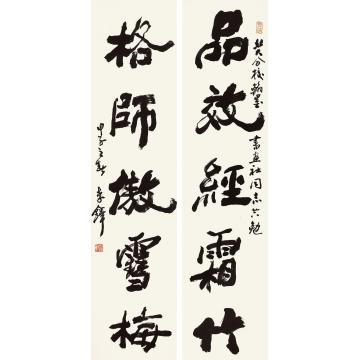 品效經霜竹
翰墨書画社同志共勉
格師傲雪梅
甲子之春 李鐸